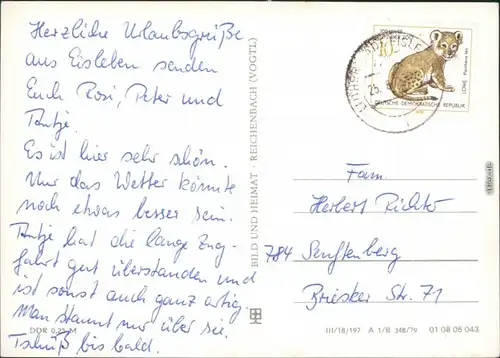 Herzliche Urlaubsgrüße
aus Eisleben senden
Euch Rosi, Peter und
Antje.
Es ist hier sehr schön.
Nur das Wetter könnte
noch etwas besser sein.
Antje hat die lange Zug-
fahrt gut überstanden und
ist sonst auch ganz artig.
Man staunt nur über sie.
Tschüß bis bald.
DDR 0,25 M
BILD UND HEIMAT · REICHENBACH (VOGTL)
10
LÖWE Panthera leo
DEUTSCHE DEMOKRATISCHE REPUBLIK
Fam.
Herbert Richter
784 Senftenberg
Briesker Str. 71
III/18/197 A 1/B 348/79 01 08 05 043